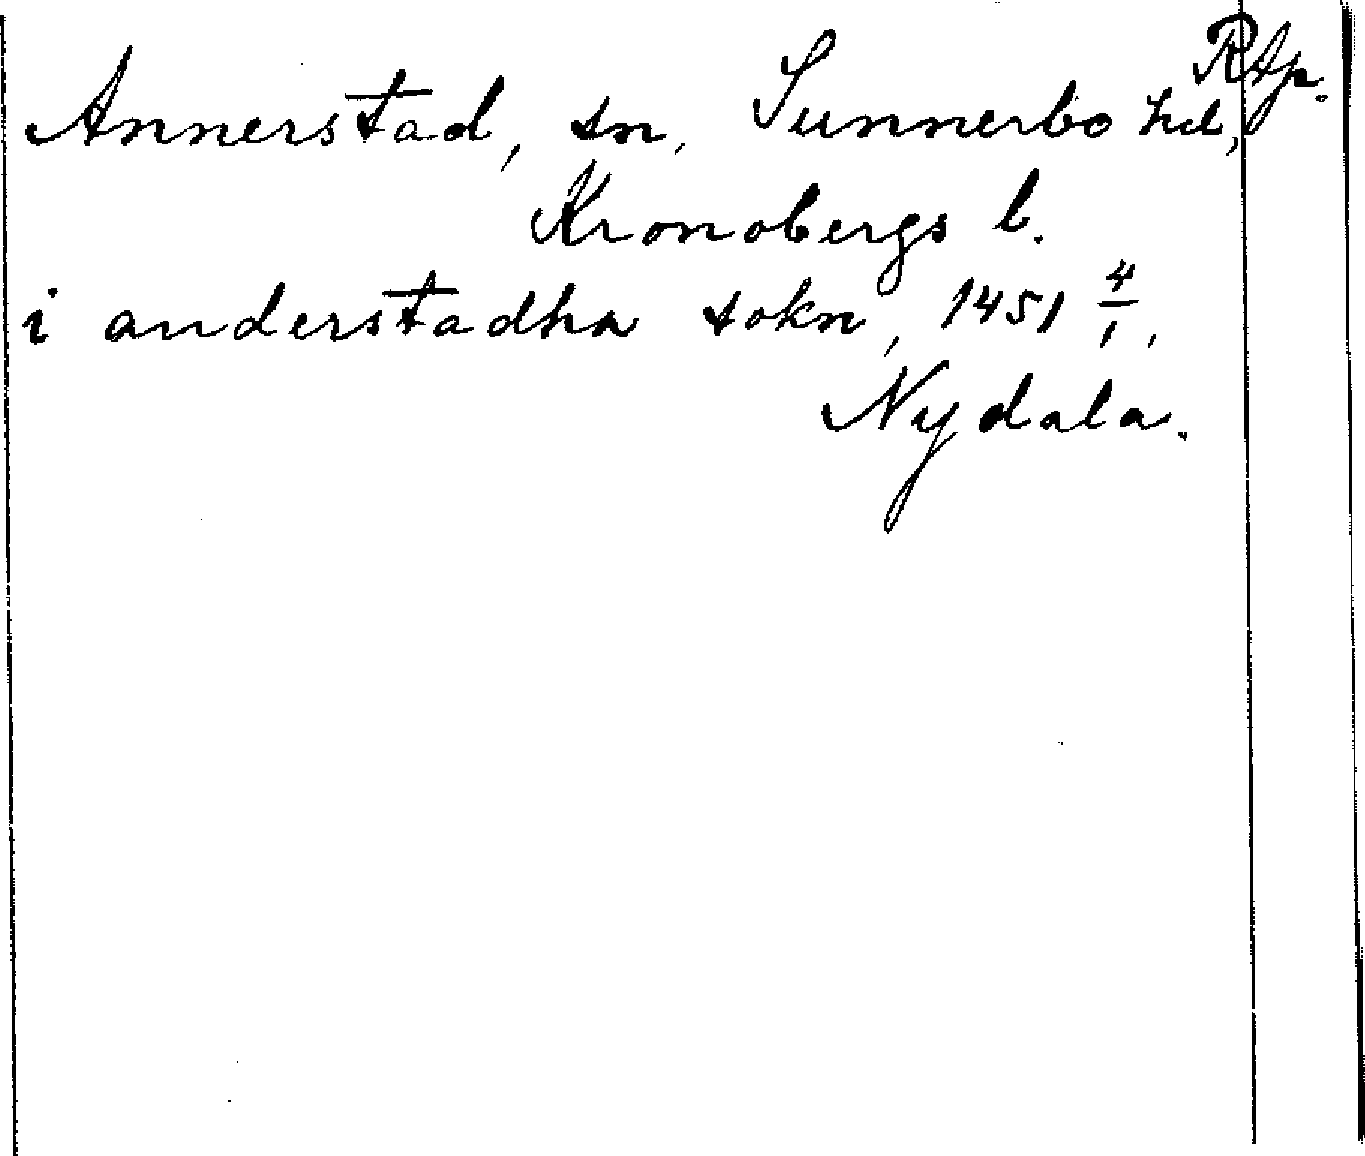 RAp.
Annerstad, sn, Sunnerbo hd,
Kronobergs l.
i anderstadha sokn, 1451 4/1,
Nydala.